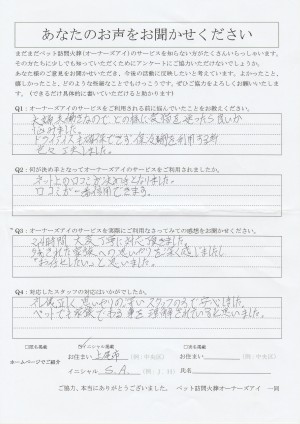 あなたのお声をお聞かせください
まだまだペット訪問火葬(オーナーズアイ)のサービスを知らない方がたくさんいらっしゃいます。
その方たちに少しでも知っていただくためにアンケートにご協力いただけないでしょうか。
あなた様のご意見をお聞かせいただき、今後の活動に反映したいと考えています。よかったこと、
嬉しかったこと、どのような些細なことでもけっこうです。ぜひご協力をよろしくお願いいたします。
(できるだけ具体的に書いていただけると助かります)
Q1:オーナーズアイのサービスをご利用される前に悩んでいたことをお教えください。
夫婦共働きなので どの様に
悩みました。
ドライアイスも
Q2:何が決め手となってオーナーズアイのサービスをご利用されましたか。
ネット上の口コミが決め手となりました。
口コミが一番信用できます。
Q3:オーナーズアイのサービスを実際にご利用なさってみての感想をお聞かせください。
24時間 大変丁寧に対応頂きました。
残された家族への思いやりを深く感じました。
"お任せしたい" と思いました。
Q4:対応したスタッフの対応はいかがでしたか。
礼儀正しく思いやりの深いスタッフの方で安心しました。
ペットと家族で
□匿名掲載 ☑イニシャル掲載 □実名掲載
ホームページでご紹介
お住まい 上尾市 (例:中央区) お住まい (例:中央区)
イニシャル S.A. 氏名
ご協力、本当にありがとうございました。 ペット訪問火葬オーナーズアイ 一同